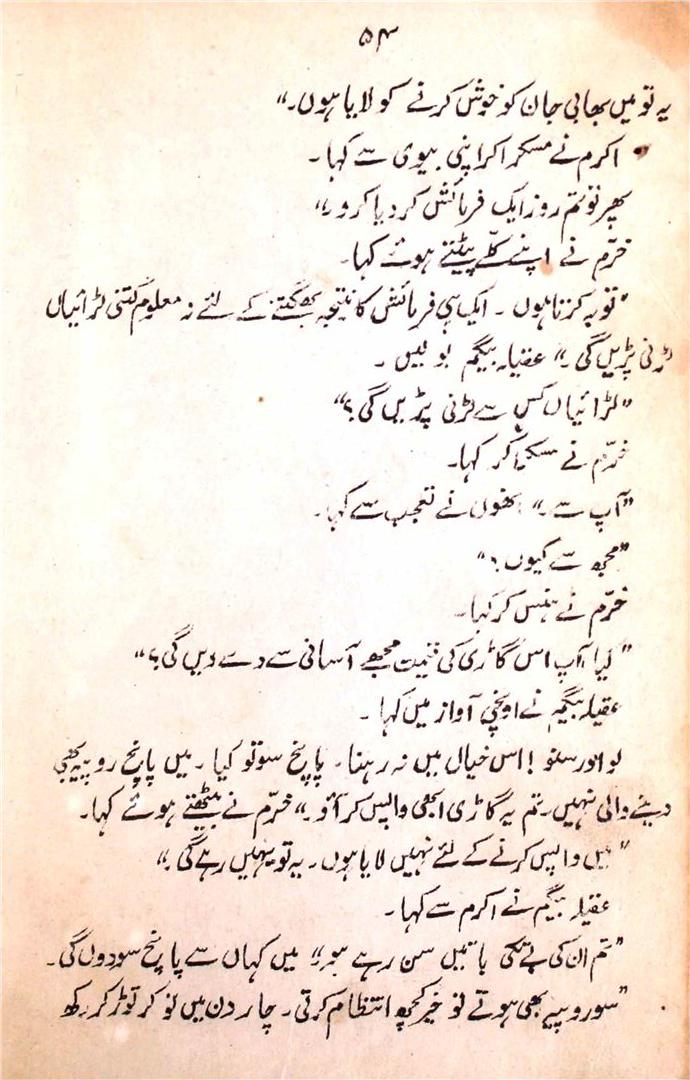 ۵۴
یہ تو میں بھابی جان کو خوش کرنے کو لایا ہوں۔“
اکرم نے مسکرا کر اپنی بیوی سے کہا۔
پھر تو تم روز ایک فرمائش کر دیا کرو۔“
خرّم نے اپنے کلّے پیٹتے ہوئے کہا۔
”توبہ کرتا ہوں۔ ایک ہی فرمائش کا نتیجہ بھگتنے کے لئے نہ معلوم کتنی لڑائیاں
لڑنی پڑیں گی۔“ عقیلہ بیگم بولیں۔
”لڑائیاں کس سے لڑنی پڑیں گی؟“
خرّم نے مسکرا کر کہا۔
”آپ سے۔“ انھوں نے تعجب سے کہا۔
”مجھ سے کیوں؟“
خرّم نے ہنس کر کہا۔
”کیا آپ اس گاڑی کی قیمت مجھے آسانی سے دے دیں گی؟“
عقیلہ بیگم نے اونچی آواز میں کہا۔
لو اور سنو! اس خیال میں نہ رہنا۔ پانچ سو تو کیا۔ میں پانچ روپیہ بھی
دینے والی نہیں۔ تم یہ گاڑی ابھی واپس کر آؤ۔“ خرّم نے بیٹھتے ہوئے کہا۔
”میں واپس کرنے کے لئے نہیں لایا ہوں۔ یہ تو یہیں رہے گی۔“
عقیلہ بیگم نے اکرم سے کہا۔
”تم ان کی بے تکی باتیں سن رہے ہو“ میں کہاں سے پانچ سو دوں گی۔
”سو روپیے بھی ہوتے تو خیر کچھ انتظام کرتی۔ چار دن میں نوکر توڑ کر رکھ